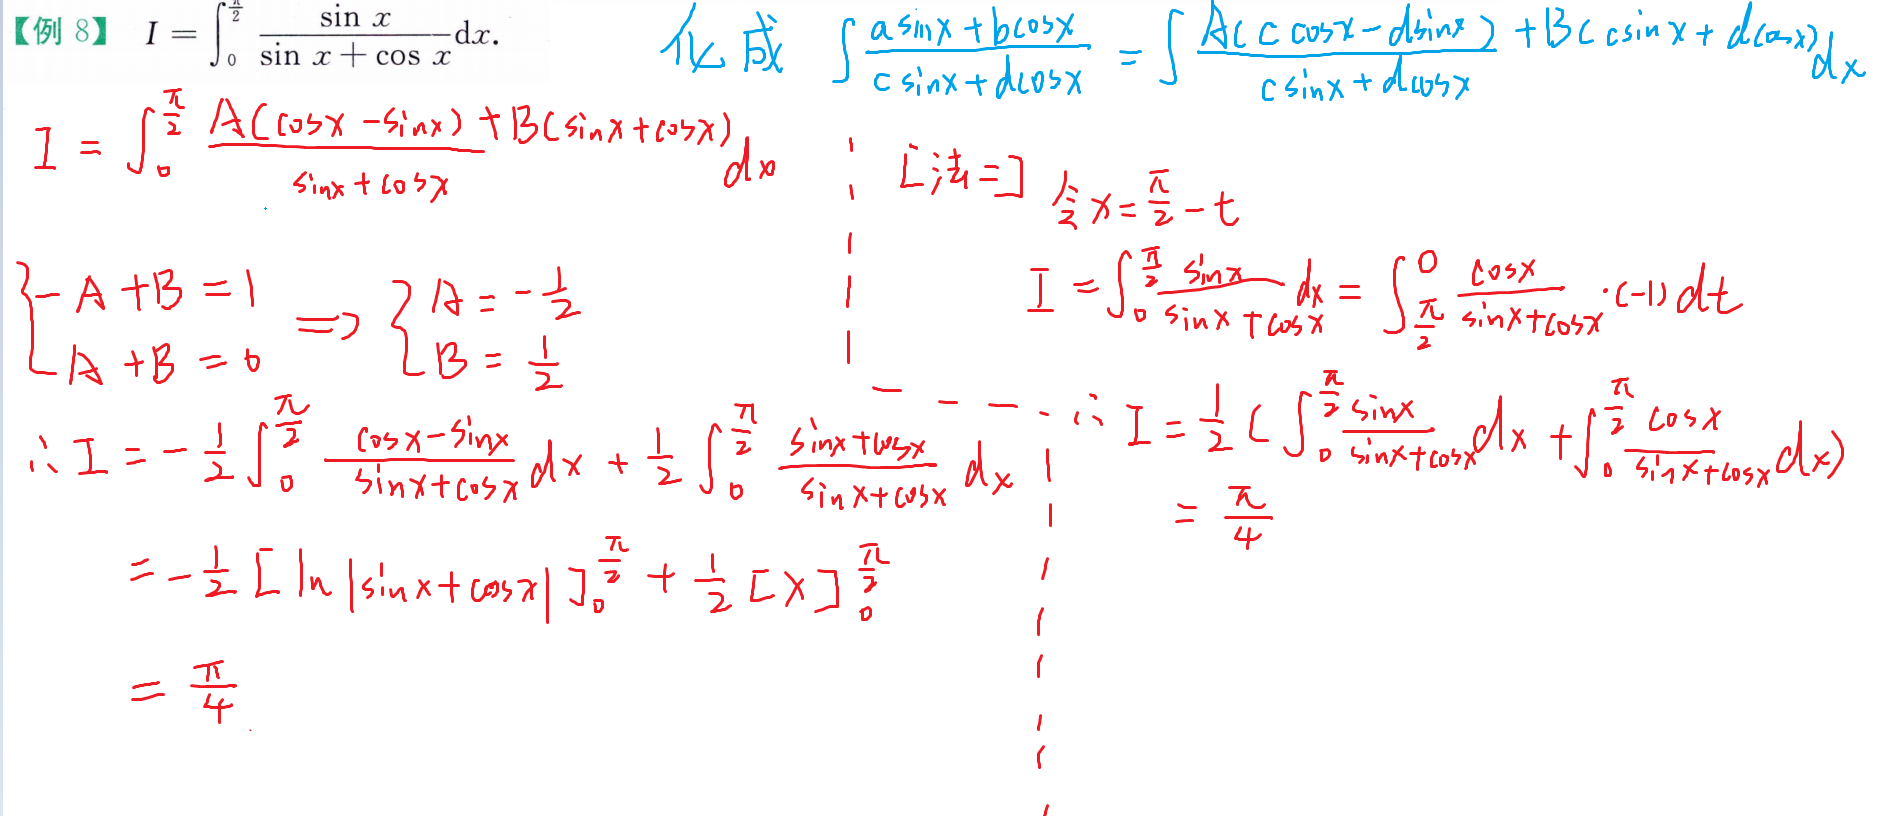 【例 8】 I = ∫_0^{π/2} (sin x)/(sin x + cos x) dx.
化成 ∫ (a sinx + b cosx)/(c sinx + d cosx) = ∫ (A(c cosx - d sinx) + B(c sinx + d cosx))/(c sinx + d cosx) dx
I = ∫_0^{π/2} (A(cosx - sinx) + B(sinx + cosx))/(sinx + cosx) dx
{ -A + B = 1
A + B = 0 ⇒ { A = -1/2
B = 1/2
∴ I = -1/2 ∫_0^{π/2} (cosx - sinx)/(sinx + cosx) dx + 1/2 ∫_0^{π/2} (sinx + cosx)/(sinx + cosx) dx
= -1/2 [ln|sinx + cosx|]_0^{π/2} + 1/2 [x]_0^{π/2}
= π/4
[法二] 令 x = π/2 - t
I = ∫_0^{π/2} (sinx)/(sinx + cosx) dx = ∫_{π/2}^0 (cosx)/(sinx + cosx) · (-1) dt
∴ I = 1/2 (∫_0^{π/2} (sinx)/(sinx + cosx) dx + ∫_0^{π/2} (cosx)/(sinx + cosx) dx)
= π/4